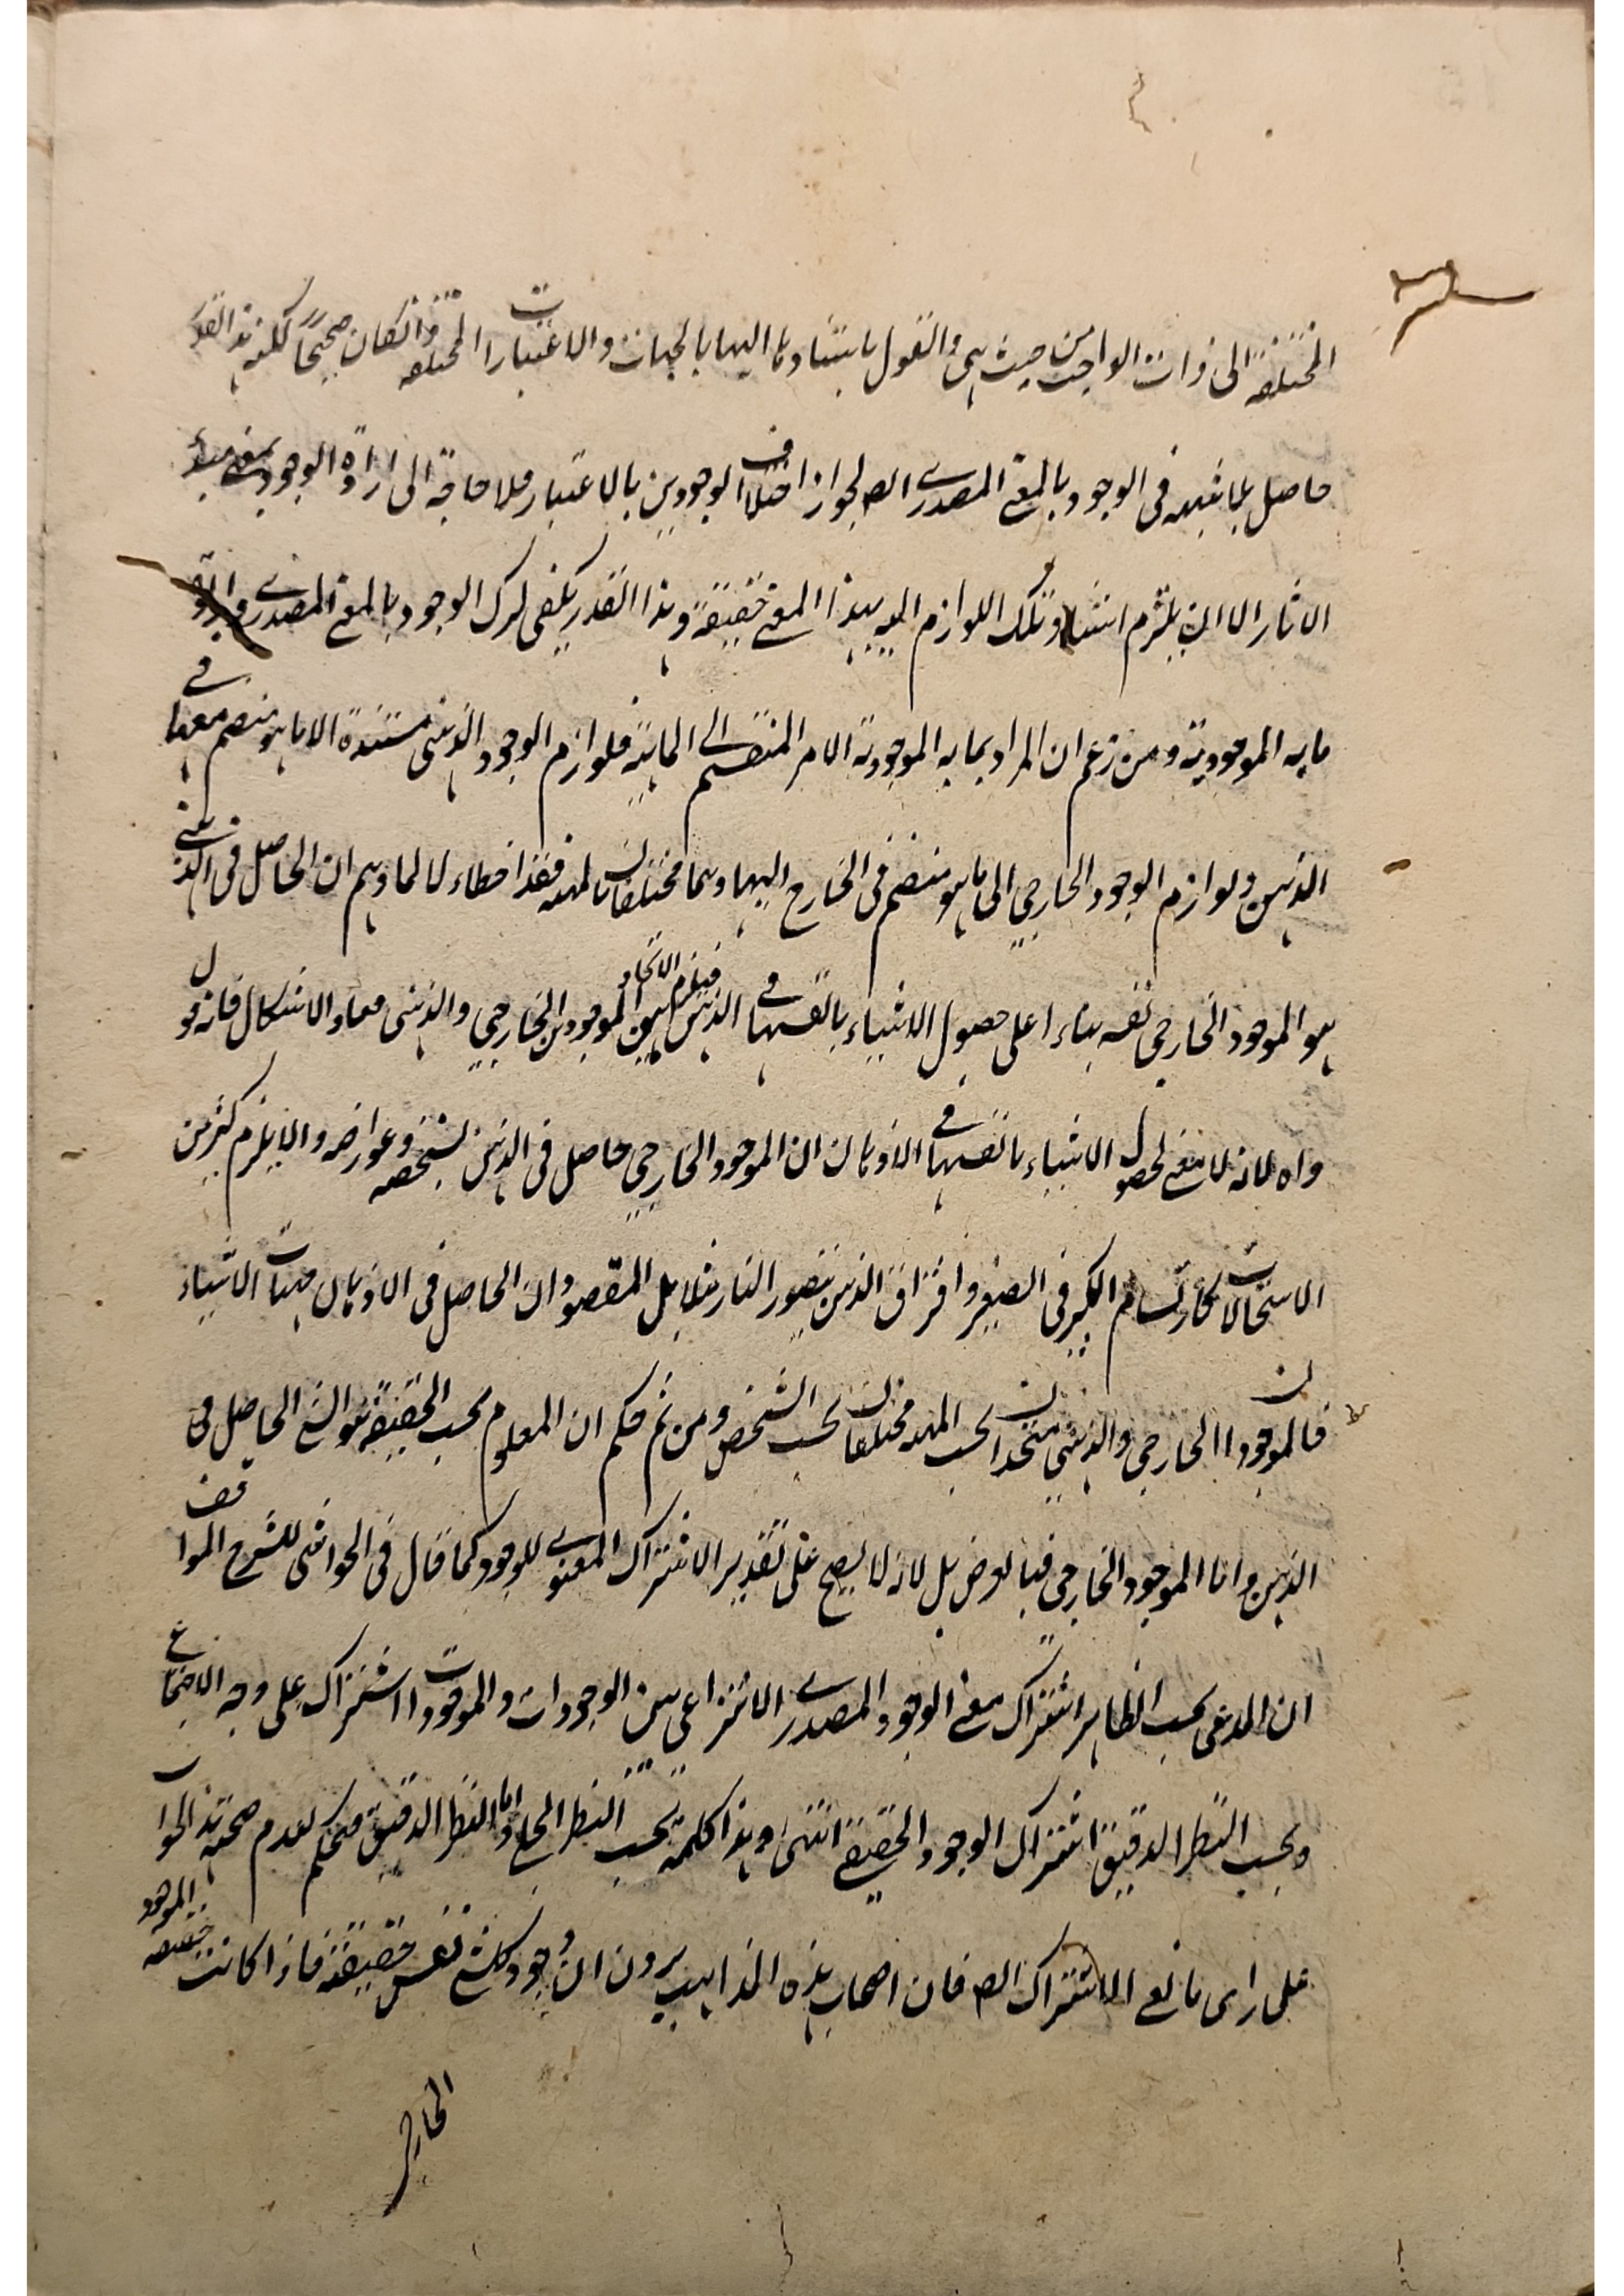 المختلفة الى ذات الواجب من حيث هى والقول باستنادها اليها بالجهات والاعتبارات المختلفة وانكان صحيحا لكنه هذا القدر
حاصل بلا شبهة فى الوجود بالمعنى المصدرے ايضا لجواز اختلاف الوجودين بالاعتبار فلا حاجة الى ارادة الوجود بمعنى مبدء
الاثار الا ان يلتزم استناد تلك اللوازم اليه بهذا المعنى حقيقة وهذا القدر يكفى لترك الوجود بالمعنى المصدرے
ما به الموجودية ومن زعم ان المراد بما به الموجودية الامر المنضم الى الماهية فلوازم الوجود الذهنى مستندة الى ما هو منضم معها فى
الذهن ولوازم الوجود الخارجي الى ما هو منضم فى الخارج اليها وهما مختلفان فقد اخطاء لا لما وهم ان الحاصل فى الذهن
هو الموجود الخارجى نفسه بناءا على حصول الاشياء بانفسها فى الذهن فيلزم الاتحاد بين الموجودين الخارجي والذهنى فعاد الاشكال فانه قول
واه لانه لا معنى لحصول الاشياء بانفسها فى الاذهان ان الموجود الخارجي حاصل فى الذهن بشخصه وعوارضه والا يلزم كثير من
الاستحالات كارتسام الكبير فى الصغير واحتراق الذهن بتصور النار مثلا بل المقصود ان الحاصل فى الاذهان مهيات الاشياء
فالموجودان الخارجى والذهنى متحدان بحسب المهية مختلفان بحسب الشخص ومن ثم حكم ان المعلوم بحسب الحقيقة هو الشئ الحاصل فى
الذهن واما الموجود الخارجى فبالعرض بل لانه لا يصح على تقدير الاشتراك المعنوے للوجود كما قال فى الحواشى للشرح المواقف
ان المدعى بحسب الظاهر اشتراك معنى الوجود المصدرے الانتزاعى بين الوجودات والموجودات اشتراك على وجه الاجتماع
وبحسب النظر الدقيق اشتراك الوجود الحقيقے انتهى وهذا كلمة بحسب النظر الجلى واما النظر الدقيق فيحكم لعدم صحة هذا الجواب
على راى مانعى الاشتراك ايضا فان اصحاب هذه المذاهب يرون ان وجود كل شئ نفس حقيقته فاذا كانت حقيقة الموجود
الخارجى